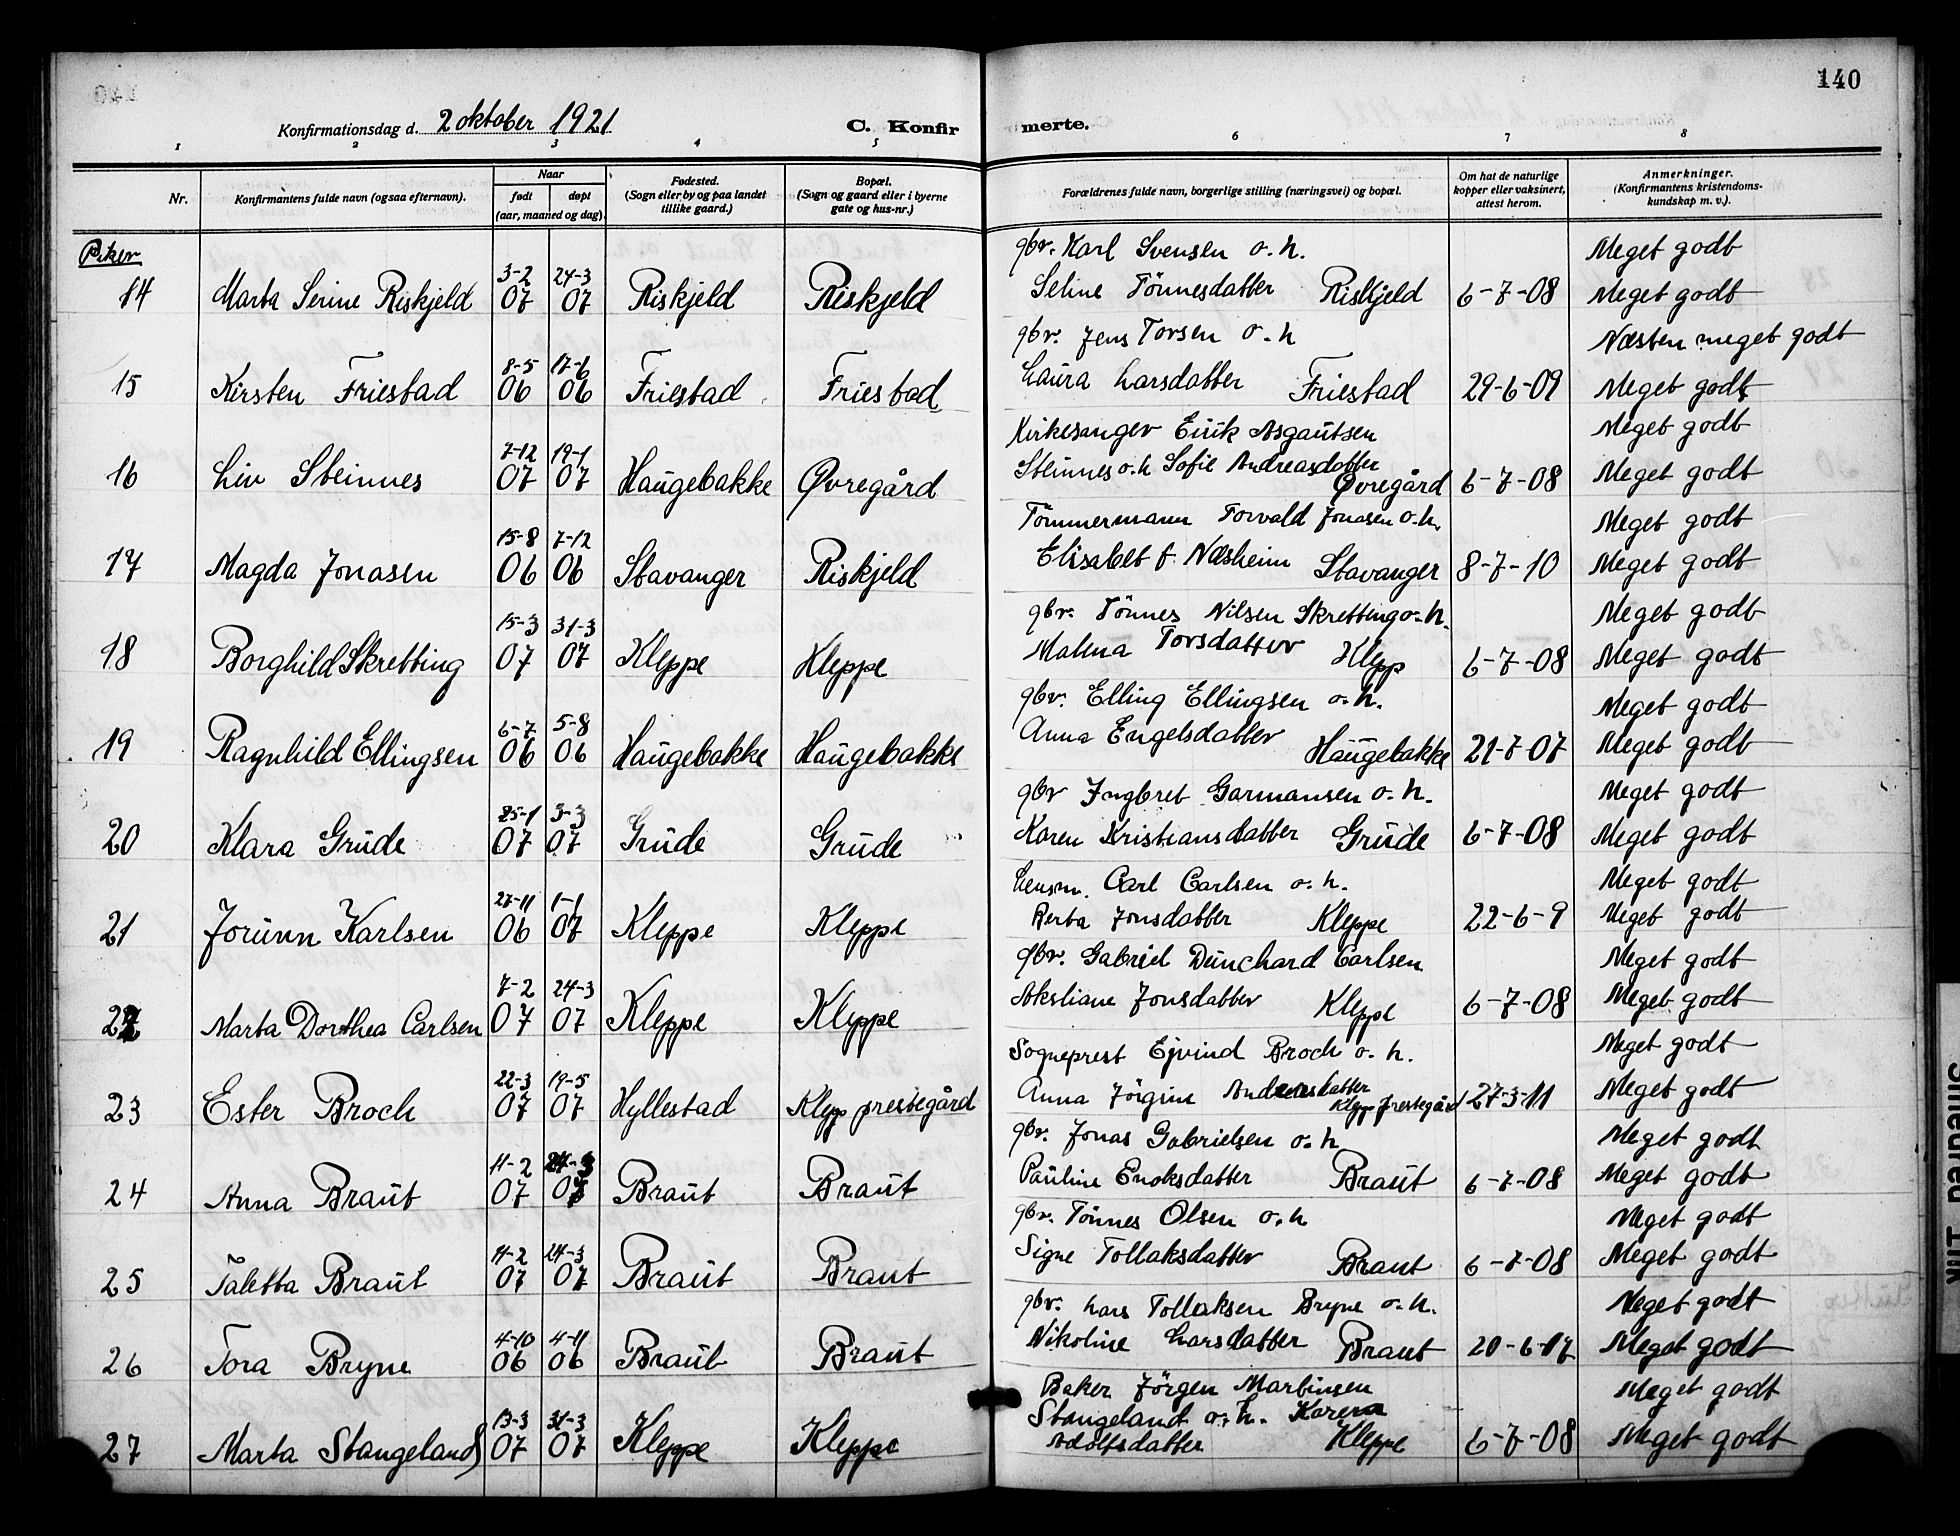 140
Konfirmationsdag d. 2 oktober 1921
C. Konfirmerte.
1 2 3 4 5 6 7 8
Nr.
Konfirmantens fulde navn (ogsaa efternavn).
Naar
født døpt
(aar, maaned og dag).
Fødested.
(Sogn eller by og paa landet
tillike gaard.)
Bopæl.
(Sogn og gaard eller i byerne
gate og hus-nr.)
Forældrenes fulde navn, borgerlige stilling (næringsvei) og bopæl.
Om hat de naturlige
kopper eller vaksinert,
attest herom.
Anmerkninger.
(Konfirmantens kristendoms-
kundskap m. v.).
Piker
gbr. Karl Svensen o. h. Meget godt
3-2 24-3
14 Marta Serine Riskjeld 07 07 Riskjeld Riskjeld Seline Tönnesdatter Riskjeld 6-7-08 Meget godt
gbr. Jens Torsen o. h Næsten meget godt
8-5 17-6
15 Kirsten Friestad 06 06 Friestad Friestad Laura Larsdatter Friestad 29-6-09 Meget godt
Kirkesanger Eirik Asgautsen Meget godt
7-12 19-1
16 Liv Steinnes 07 07 Haugebakke Øvregård Steinnes o. h Sofie Andreasdatter Øvregård 6-7-08 Meget godt
Tömmermann Torvald Jonasen o. h. Meget godt
15-8 7-12
17 Magda Jonasen 06 06 Stavanger Riskjeld Elisabet f. Næsheim Stavanger 8-7-10 Meget godt
gbr. Tönnes Nilsen Skretting o. h. Meget godt
15-3 31-3
18 Borghild Skretting 07 07 Kleppe Kleppe Malena Torsdatter Klepp 6-7-08 Meget godt
gbr. Elling Ellingsen o. h. Meget godt
6-7 5-8
19 Ragnhild Ellingsen 06 06 Haugebakke Haugebakke Anna Engelsdatter Haugebakke 21-7-07 Meget godt
gbr Ingbret Garmansen o. h. Meget godt
25-1 3-3
20 Klara Grude 07 07 Grude Grude Karen Kristiansdatter Grude 6-7-08 Meget godt
Lensm. Carl Carlsen o. h. Meget godt
27-11 1-1
21 Jorunn Karlsen 06 07 Kleppe Kleppe Berta Jonsdatter Kleppe 22-6-9 Meget godt
gbr. Gabriel Dunchard Carlsen Meget godt
7-2 24-3
22 Marta Dorthea Carlsen 07 07 Kleppe Kleppe Aksliane Jonsdatter Kleppe 6-7-08 Meget godt
Sogneprest Ejvind Broch o. h. Meget godt
22-3 19-5
23 Ester Broch 07 07 Hyllestad Klepp prestegård Anna Jörgine Andreasdatter Klepp prestegård 27-3-11 Meget godt
gbr. Jonas Gabrielsen o. h Meget godt
11-2 24-3
24 Anna Braut 07 07 Braut Braut Pauline Enoksdatter Braut 6-7-08 Meget godt
gbr. Tönnes Olsen o. h Meget godt
11-2 24-3
25 Taletta Braut 07 07 Braut Braut Signe Tollaksdatter Braut 6-7-08 Meget godt
gbr. Lars Tollaksen Bryne o. h. Meget godt
4-10 4-11
26 Tora Bryne 06 06 Braut Braut Nikoline Larsdatter Braut 20-6-17 Meget godt
Baker Jörgen Martinsen Meget godt
Stangeland o. h. Karen
13-3 31-3
27 Marta Stangeland 07 07 Kleppe Kleppe Adolfsdatter Kleppe 6-7-08 Meget godt